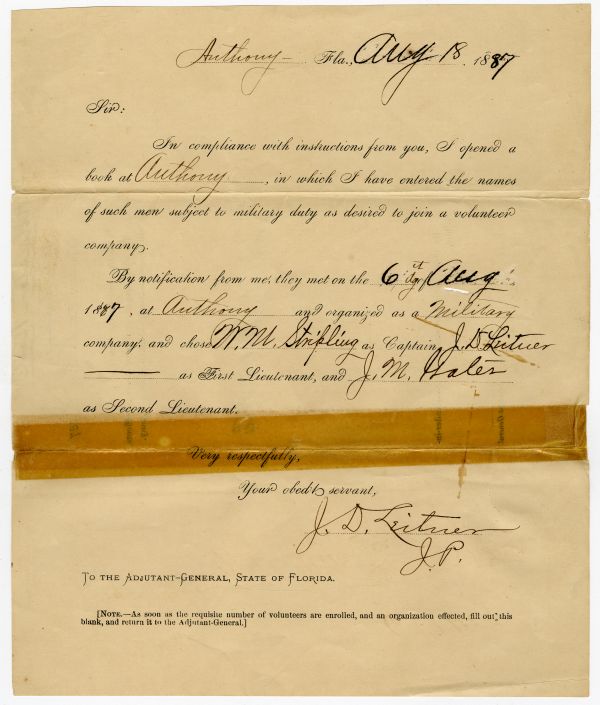 Anthony – Fla., Aug 18. 1887
Sir:
In compliance with instructions from you, I opened a
book at Anthony, in which I have entered the names
of such men subject to military duty as desired to join a volunteer
company.
By notification from me, they met on the 6 Aug
1887, at Anthony and organized as a Military
company, and chose W. M. Stripling as Captain, J. D. Leitner
as First Lieutenant, and J. M.
as Second Lieutenant.
Very respectfully,
Your obed't servant,
J. D. Leitner
J. P.
To the Adjutant-General, State of Florida.
[Note.—As soon as the requisite number of volunteers are enrolled, and an organization effected, fill out this
blank, and return it to the Adjutant-General.]